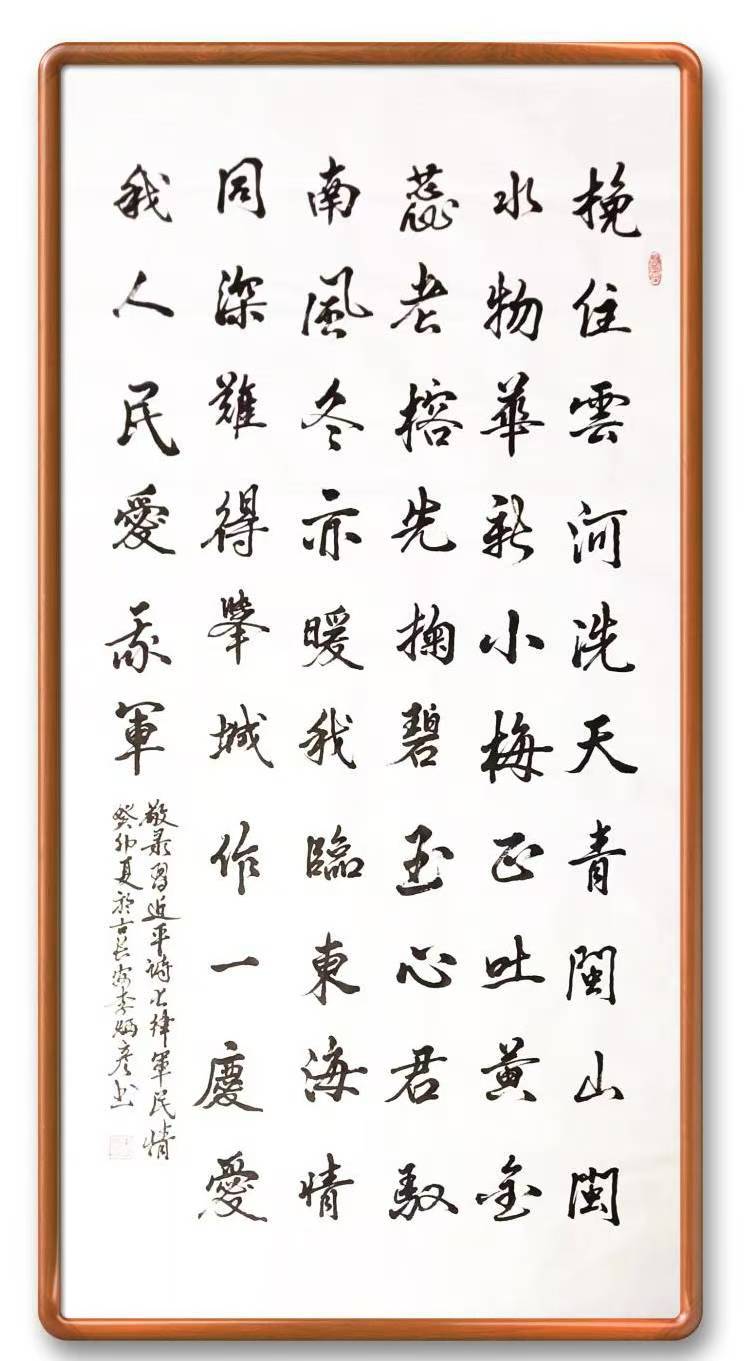 挽住雲河洗天青閩山閩
水物華新小梅正吐黃金
蕊老榕先掬碧玉心君馭
南風冬亦暖我臨東海情
同深難得舉城作一慶愛
我人民愛我軍
敬录習近平詩七律軍民情
癸卯夏於古長安李炳彥书